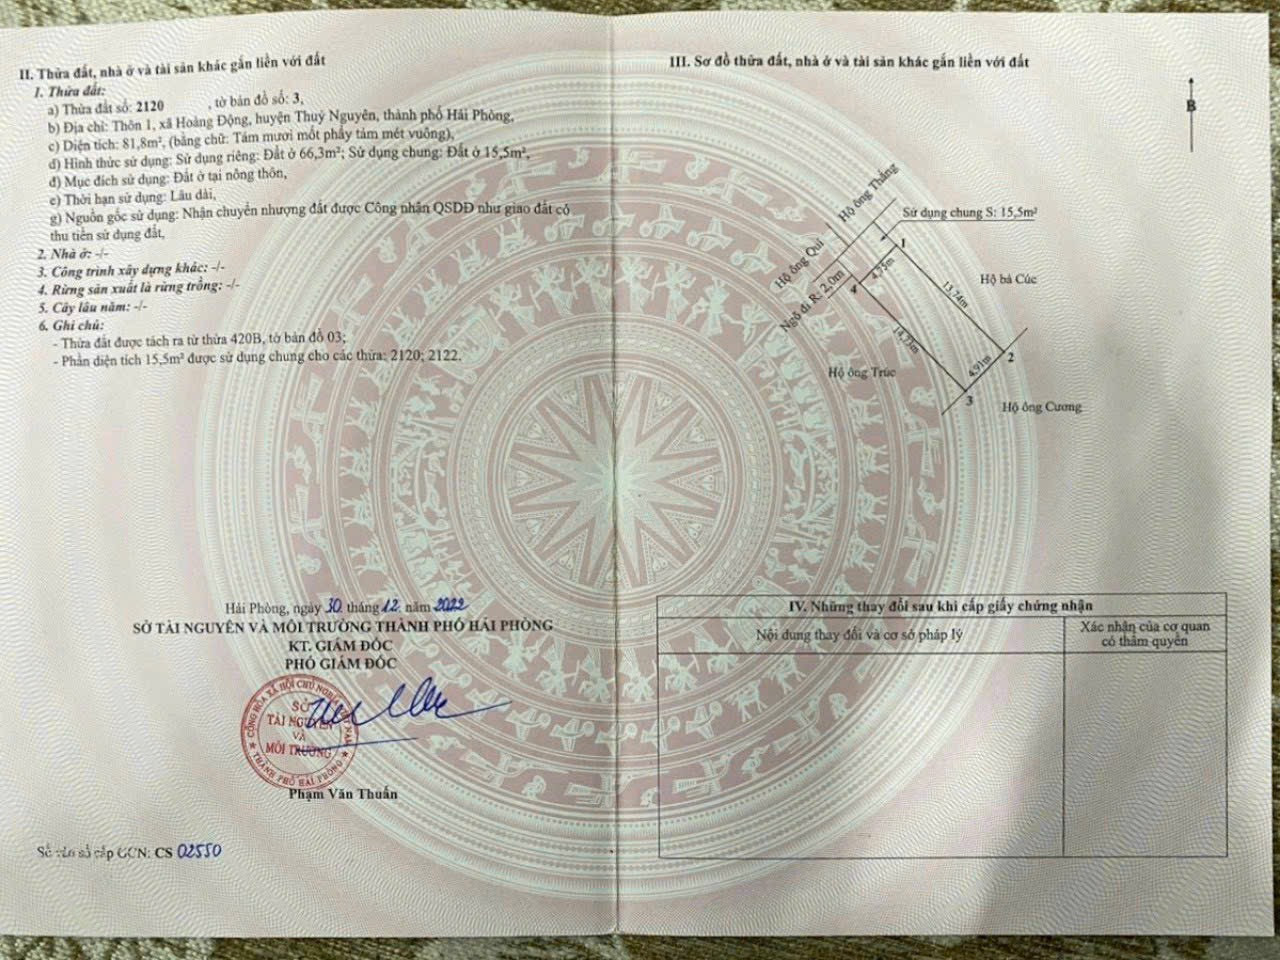 II. Thửa đất, nhà ở và tài sản khác gắn liền với đất
1. Thửa đất:
a) Thửa đất số: 2120 , tờ bản đồ số: 3,
b) Địa chỉ: Thôn 1, xã Hoàng Động, huyện Thuỷ Nguyên, thành phố Hải Phòng,
c) Diện tích: 81,8m², (bằng chữ: Tám mươi mốt phẩy tám mét vuông),
d) Hình thức sử dụng: Sử dụng riêng: Đất ở 66,3m²; Sử dụng chung: Đất ở 15,5m²,
đ) Mục đích sử dụng: Đất ở tại nông thôn,
e) Thời hạn sử dụng: Lâu dài,
g) Nguồn gốc sử dụng: Nhận chuyển nhượng đất được Công nhận QSDĐ như giao đất có
thu tiền sử dụng đất,
2. Nhà ở: -/-
3. Công trình xây dựng khác: -/-
4. Rừng sản xuất là rừng trồng: -/-
5. Cây lâu năm: -/-
6. Ghi chú:
- Thửa đất được tách ra từ thửa 420B, tờ bản đồ 03;
- Phần diện tích 15,5m² được sử dụng chung cho các thửa: 2120; 2122.
Hải Phòng, ngày 30 tháng 12 năm 2022
SỞ TÀI NGUYÊN VÀ MÔI TRƯỜNG THÀNH PHỐ HẢI PHÒNG
KT. GIÁM ĐỐC
PHÓ GIÁM ĐỐC
CỘNG HÒA XÃ HỘI CHỦ NGHĨA VIỆT NAM
SỞ
TÀI NGUYÊN
VÀ
MÔI TRƯỜNG
★ THÀNH PHỐ HẢI PHÒNG ★
Phạm Văn Thuấn
Số vào sổ cấp GCN: CS 02550
III. Sơ đồ thửa đất, nhà ở và tài sản khác gắn liền với đất
B
Hộ ông Thắng
Sử dụng chung S: 15,5m²
Hộ ông Quí
Ngõ đi R: 2,0m
1
4,75m
4
Hộ bà Cúc
13,74m
14,73m
Hộ ông Trúc
4,91m
2
3
Hộ ông Cương
IV. Những thay đổi sau khi cấp giấy chứng nhận
Nội dung thay đổi và cơ sở pháp lý
Xác nhận của cơ quan
có thẩm quyền